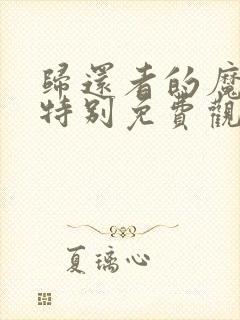 歸還者的魔
特別免費觀
夏璃心